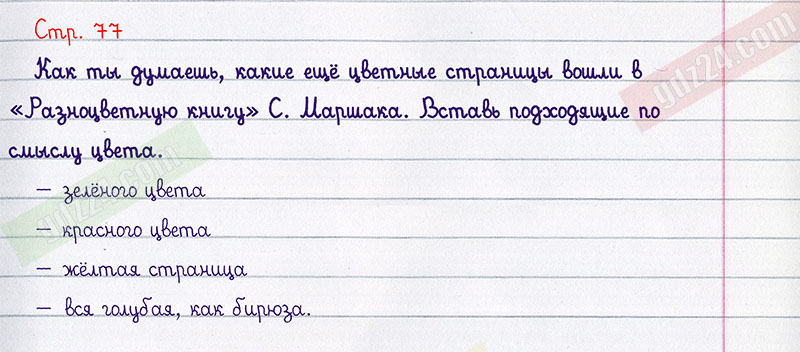 Стр. 77
Как ты думаешь, какие ещё цветные страницы вошли в
«Разноцветную книгу» С. Маршака. Вставь подходящие по
смыслу цвета.
– зелёного цвета
– красного цвета
– жёлтая страница
– вся голубая, как бирюза.
gdz24.com
gdz24.com